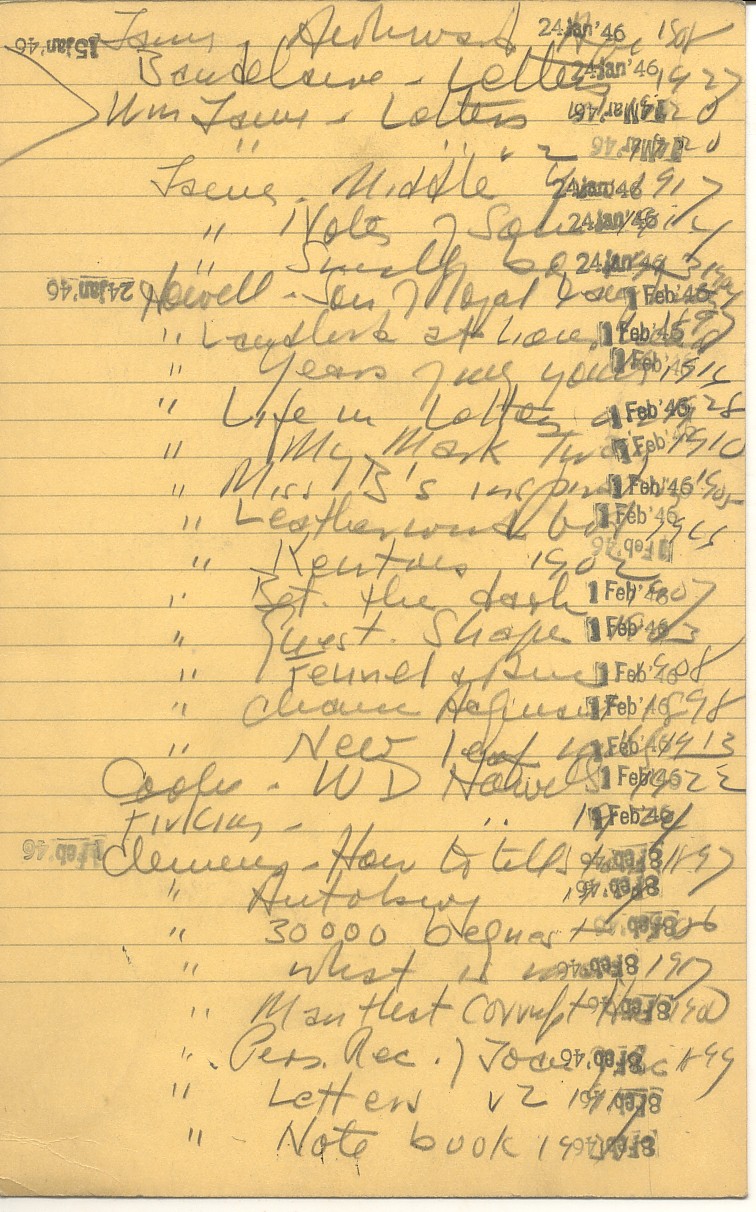 15 Jan '46 James - Awkward Age 24 Jan '46
Baudelaire - Letters 24 Jan '46 1927
Wm James - Letters 14 Mar '46 20
" " " 2 14 Mar '46 20
James - Middle Y 24 Jan '46 1917
" Notes of Son 24 Jan '46 1914
" Small bo 24 Jan '46
24 Jan '46 Howell - Son of Royal Lang 1 Feb '46
" Landlord at 1 Feb '46
" Years of my youth 1 Feb '46 1916
" Life in Letters 1 Feb '46 1928
" My Mark Twain 1 Feb '46 1910
" Miss B's inspira 1 Feb '46 1905
" Leatherwood 1 Feb '46 1916
" Kentons 1902 1 Feb '46
" Bet. the dark 1 Feb '46 1907
" Quest. Shapes 1 Feb '46 1903
" Fennel & Rue 1 Feb '46 1908
" 1 Feb '46 1898
" New leaf 1 Feb '46 1913
Cooke - W D Howells 1 Feb '46 1922
Firkins - " 1 Feb '46 1924
1 Feb '46 Clemens - How to tell 8 Feb '46 1897
" Autobiog 8 Feb '46
" 30000 beques 8 Feb '46 1906
" What is man 8 Feb '46 1917
" Man that corrupt H 8 Feb '46 1900
" Pers. Rec. of Joan 8 Feb '46 1899
" Letters v 2 1917 8 Feb '46
" Note book 8 Feb '46